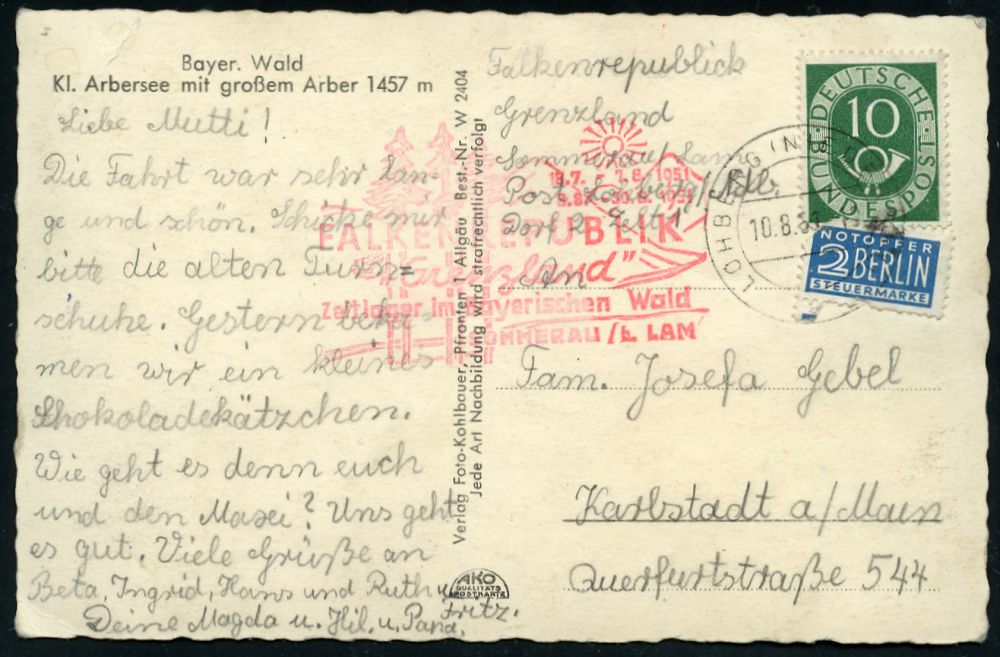 Bayer. Wald
Kl. Arbersee mit großem Arber 1457 m
Liebe Mutti!
Die Fahrt war sehr lan-
ge und schön. Schicke mir
bitte die alten Turn=
schuhe. Gestern beka-
men wir ein kleines
Schokoladekätzchen.
Wie geht es denn euch
und den Masei? Uns geht
es gut. Viele Grüße an
Beta, Ingrid, Hans und Ruth u.
Fritz.
Deine Magda u. Hil. u. Papa.
Verlag Foto-Kohlbauer, Pfronten 1 Allgäu Best.-Nr. W 2404
Jede Art Nachbildung wird strafrechtlich verfolgt
AKO
QUALITÄTS
POSTKARTE
Falkenrepublick
Grenzland
Sommerau/Lam
Post Lohberg/Ndb.
Dorf 2 Zelt 1
An
Fam. Josefa Gebel
Karlstadt a/Main
Querfurtstraße 544
18.7. - 7.8. 1951
9.8. - 30.8. 1951
FALKENREPUBLIK
"Grenzland"
Zeltlager im Bayerischen Wald
SOMMERAU / b. LAM
DEUTSCHE BUNDESPOST
10
NOTOPFER
2 BERLIN
STEUERMARKE
LOHBERG
10.8.